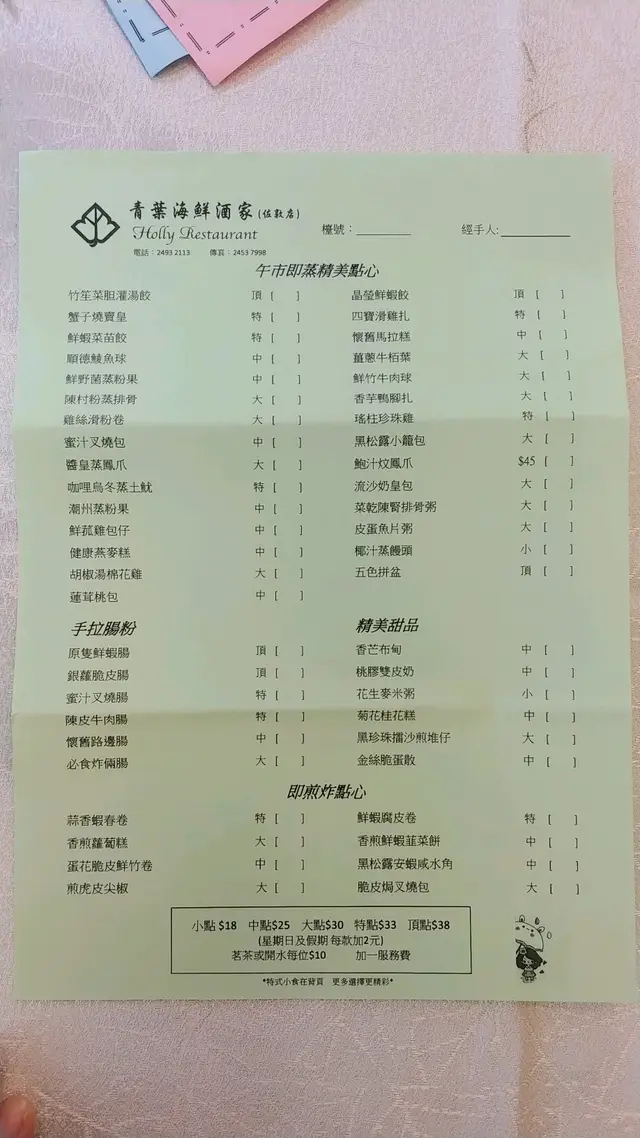 青葉海鮮酒家(佐敦店)
Holly Restaurant
檯號：________ 經手人:__________
電話：2493 2113 傳真：2453 7998
午市即蒸精美點心
竹笙菜胆灌湯餃 頂 [ ] 晶瑩鮮蝦餃 頂 [ ]
蟹子燒賣皇 特 [ ] 四寶滑雞扎 特 [ ]
鮮蝦菜苗餃 特 [ ] 懷舊馬拉糕 中 [ ]
順德鯪魚球 中 [ ] 薑蔥牛栢葉 大 [ ]
鮮野菌蒸粉果 中 [ ] 鮮竹牛肉球 大 [ ]
陳村粉蒸排骨 大 [ ] 香芋鴨腳扎 大 [ ]
雞絲滑粉卷 大 [ ] 瑤柱珍珠雞 特 [ ]
蜜汁叉燒包 中 [ ] 黑松露小籠包 大 [ ]
醬皇蒸鳳爪 大 [ ] 鮑汁炆鳳爪 $45 [ ]
咖哩烏冬蒸土魷 特 [ ] 流沙奶皇包 大 [ ]
潮州蒸粉果 中 [ ] 菜乾陳腎排骨粥 大 [ ]
鮮菰雞包仔 中 [ ] 皮蛋魚片粥 大 [ ]
健康燕麥糕 中 [ ] 椰汁蒸饅頭 小 [ ]
胡椒湯棉花雞 大 [ ] 五色拼盆 頂 [ ]
蓮茸桃包 中 [ ]
手拉腸粉 精美甜品
原隻鮮蝦腸 頂 [ ] 香芒布甸 中 [ ]
銀蘿脆皮腸 頂 [ ] 桃膠雙皮奶 中 [ ]
蜜汁叉燒腸 特 [ ] 花生麥米粥 小 [ ]
陳皮牛肉腸 特 [ ] 菊花桂花糕 中 [ ]
懷舊路邊腸 中 [ ] 黑珍珠擂沙煎堆仔 大 [ ]
必食炸倆腸 大 [ ] 金絲脆蛋散 中 [ ]
即煎炸點心
蒜香蝦春卷 特 [ ] 鮮蝦腐皮卷 特 [ ]
香煎蘿蔔糕 大 [ ] 香煎鮮蝦韮菜餅 中 [ ]
蛋花脆皮鮮竹卷 中 [ ] 黑松露安蝦咸水角 中 [ ]
煎虎皮尖椒 大 [ ] 脆皮焗叉燒包 大 [ ]
小點 $18 中點$25 大點$30 特點$33 頂點$38
(星期日及假期 每款加2元)
茗茶或開水每位$10 加一服務費
*特式小食在背頁 更多選擇更精彩*